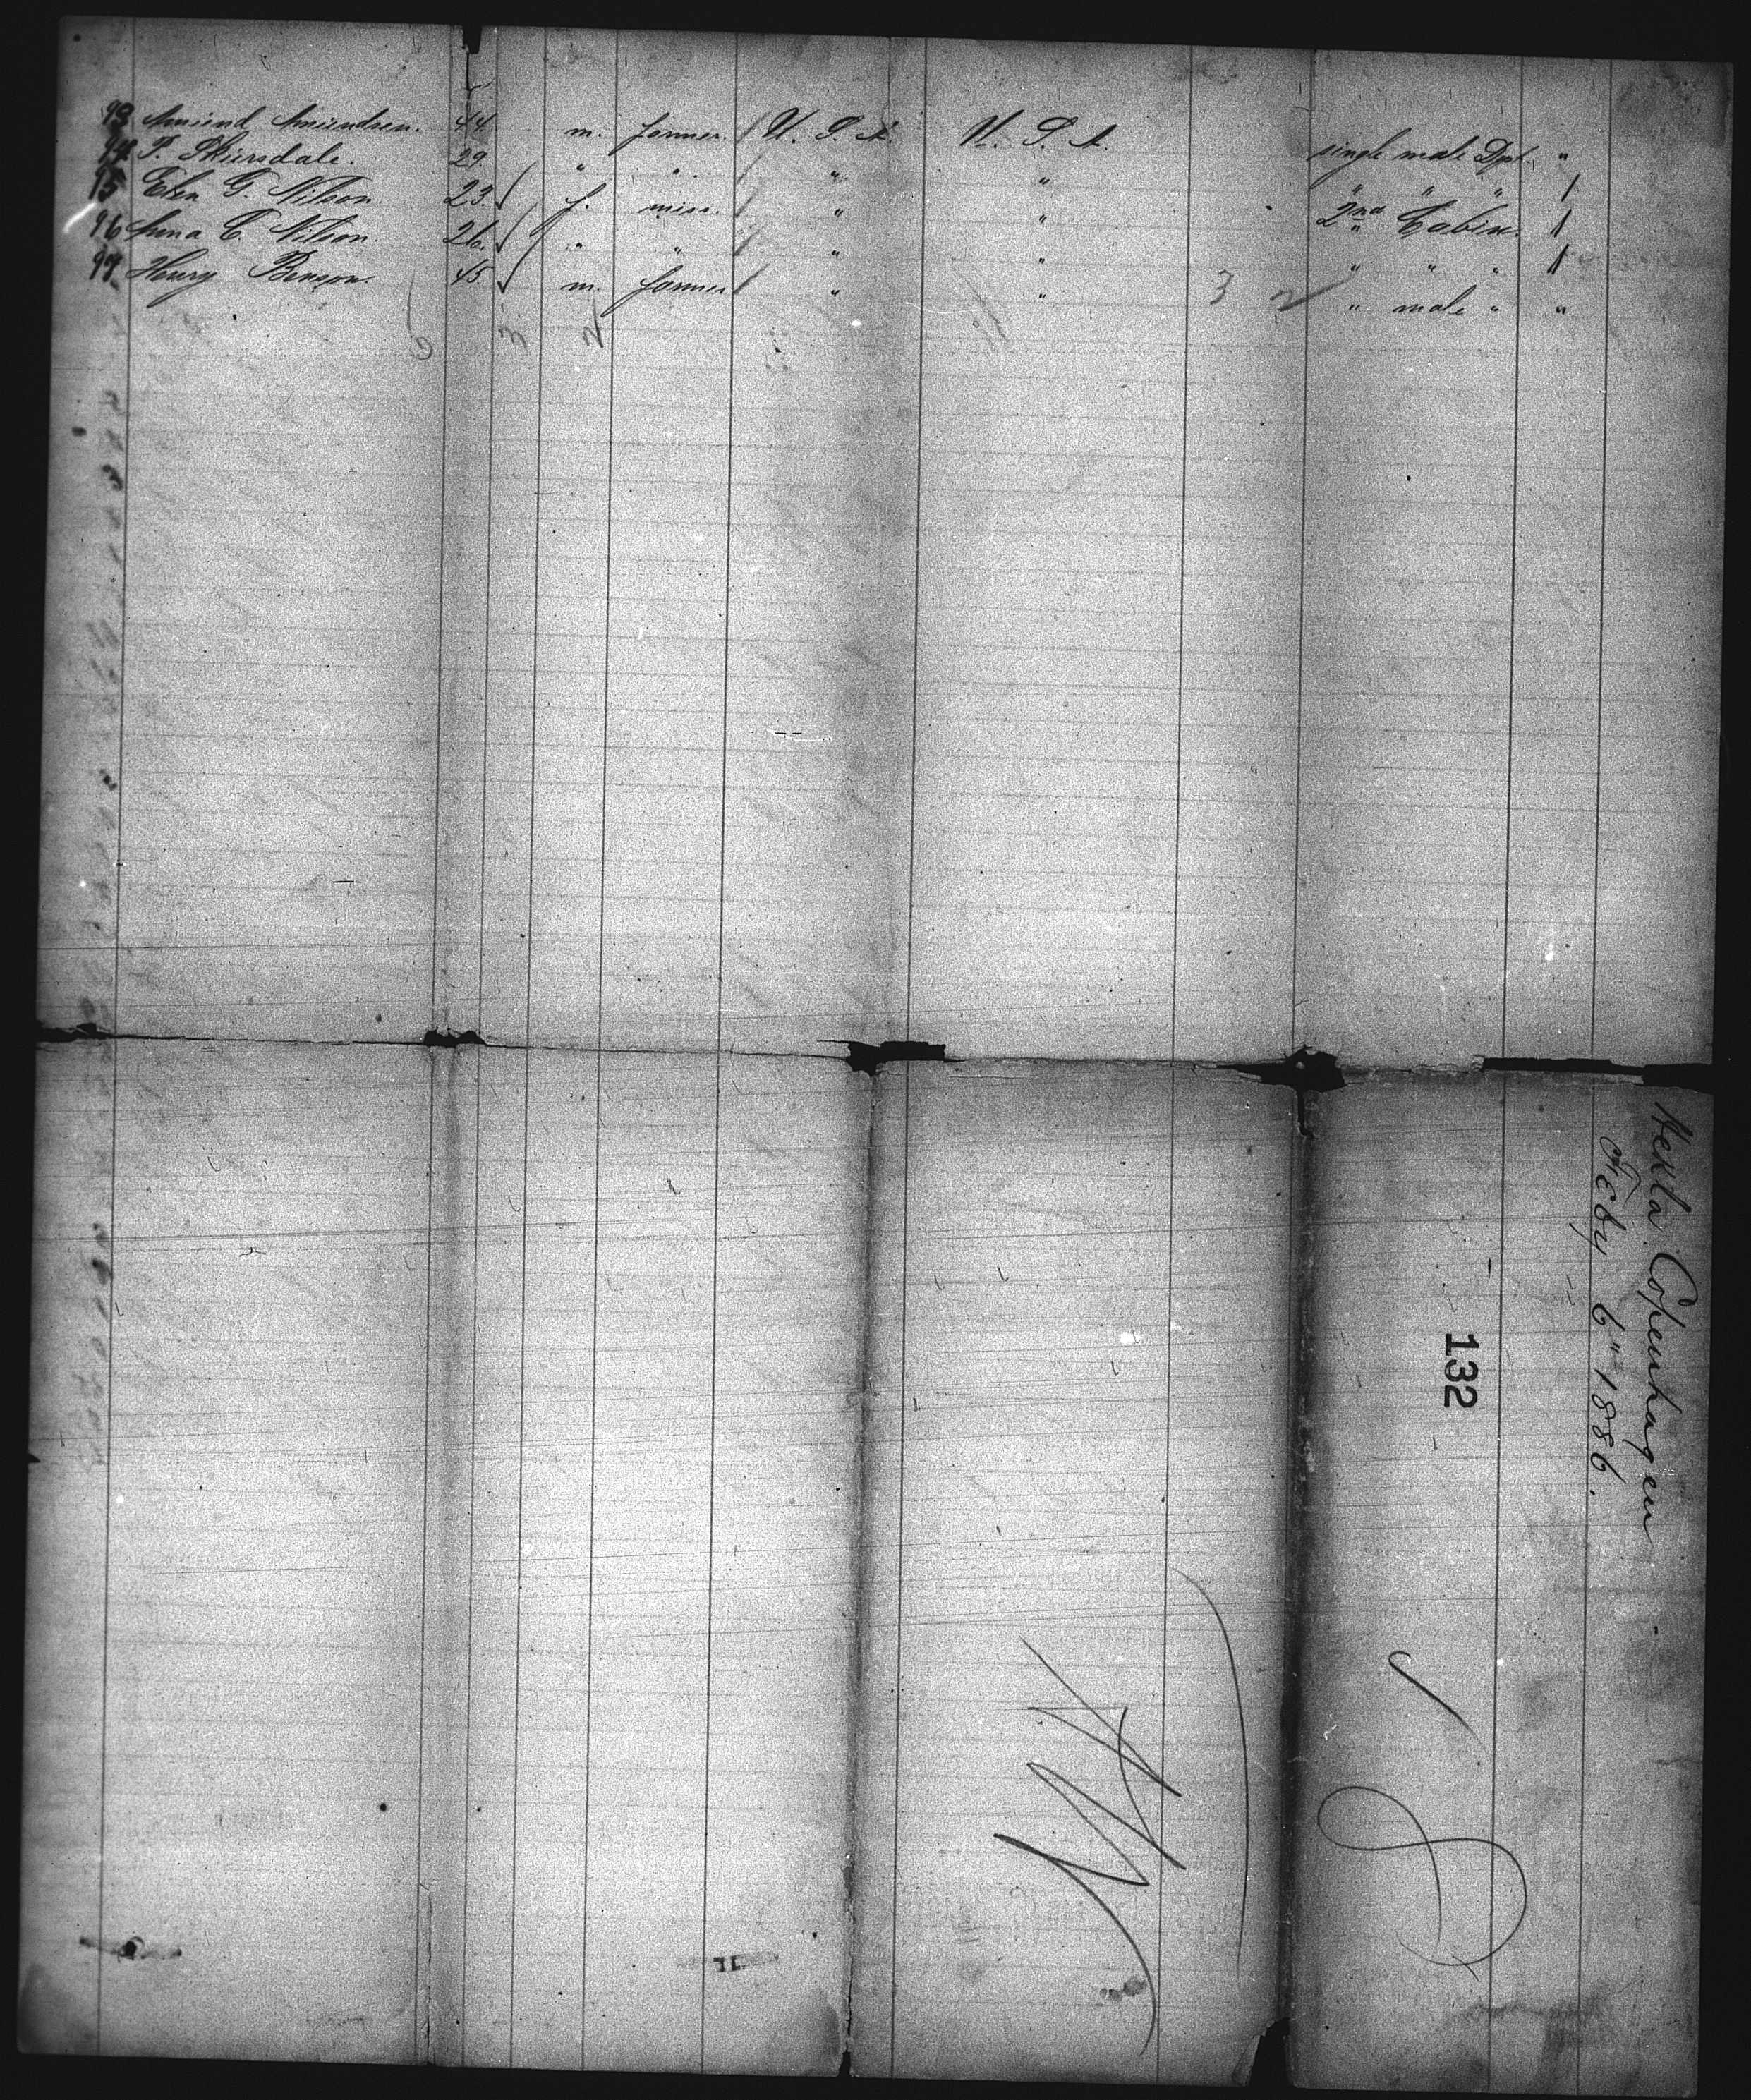 93 Amund Amundsen. 44 m. farmer. U. S. A. U. S. A. single male Dpt. "
94 T. Skiersdale. 29 " " " " " " " /
95 Elen G. Nilson 23 f. miss. " " 2nd Cabin. /
96 Anna C. Nilson. 26 " " " " " " " /
97 Henry Benson. 45 m. farmer " " 3 2 " male " "
6 3 2
Hekla Copenhagen
Feby 6" 1886.
132